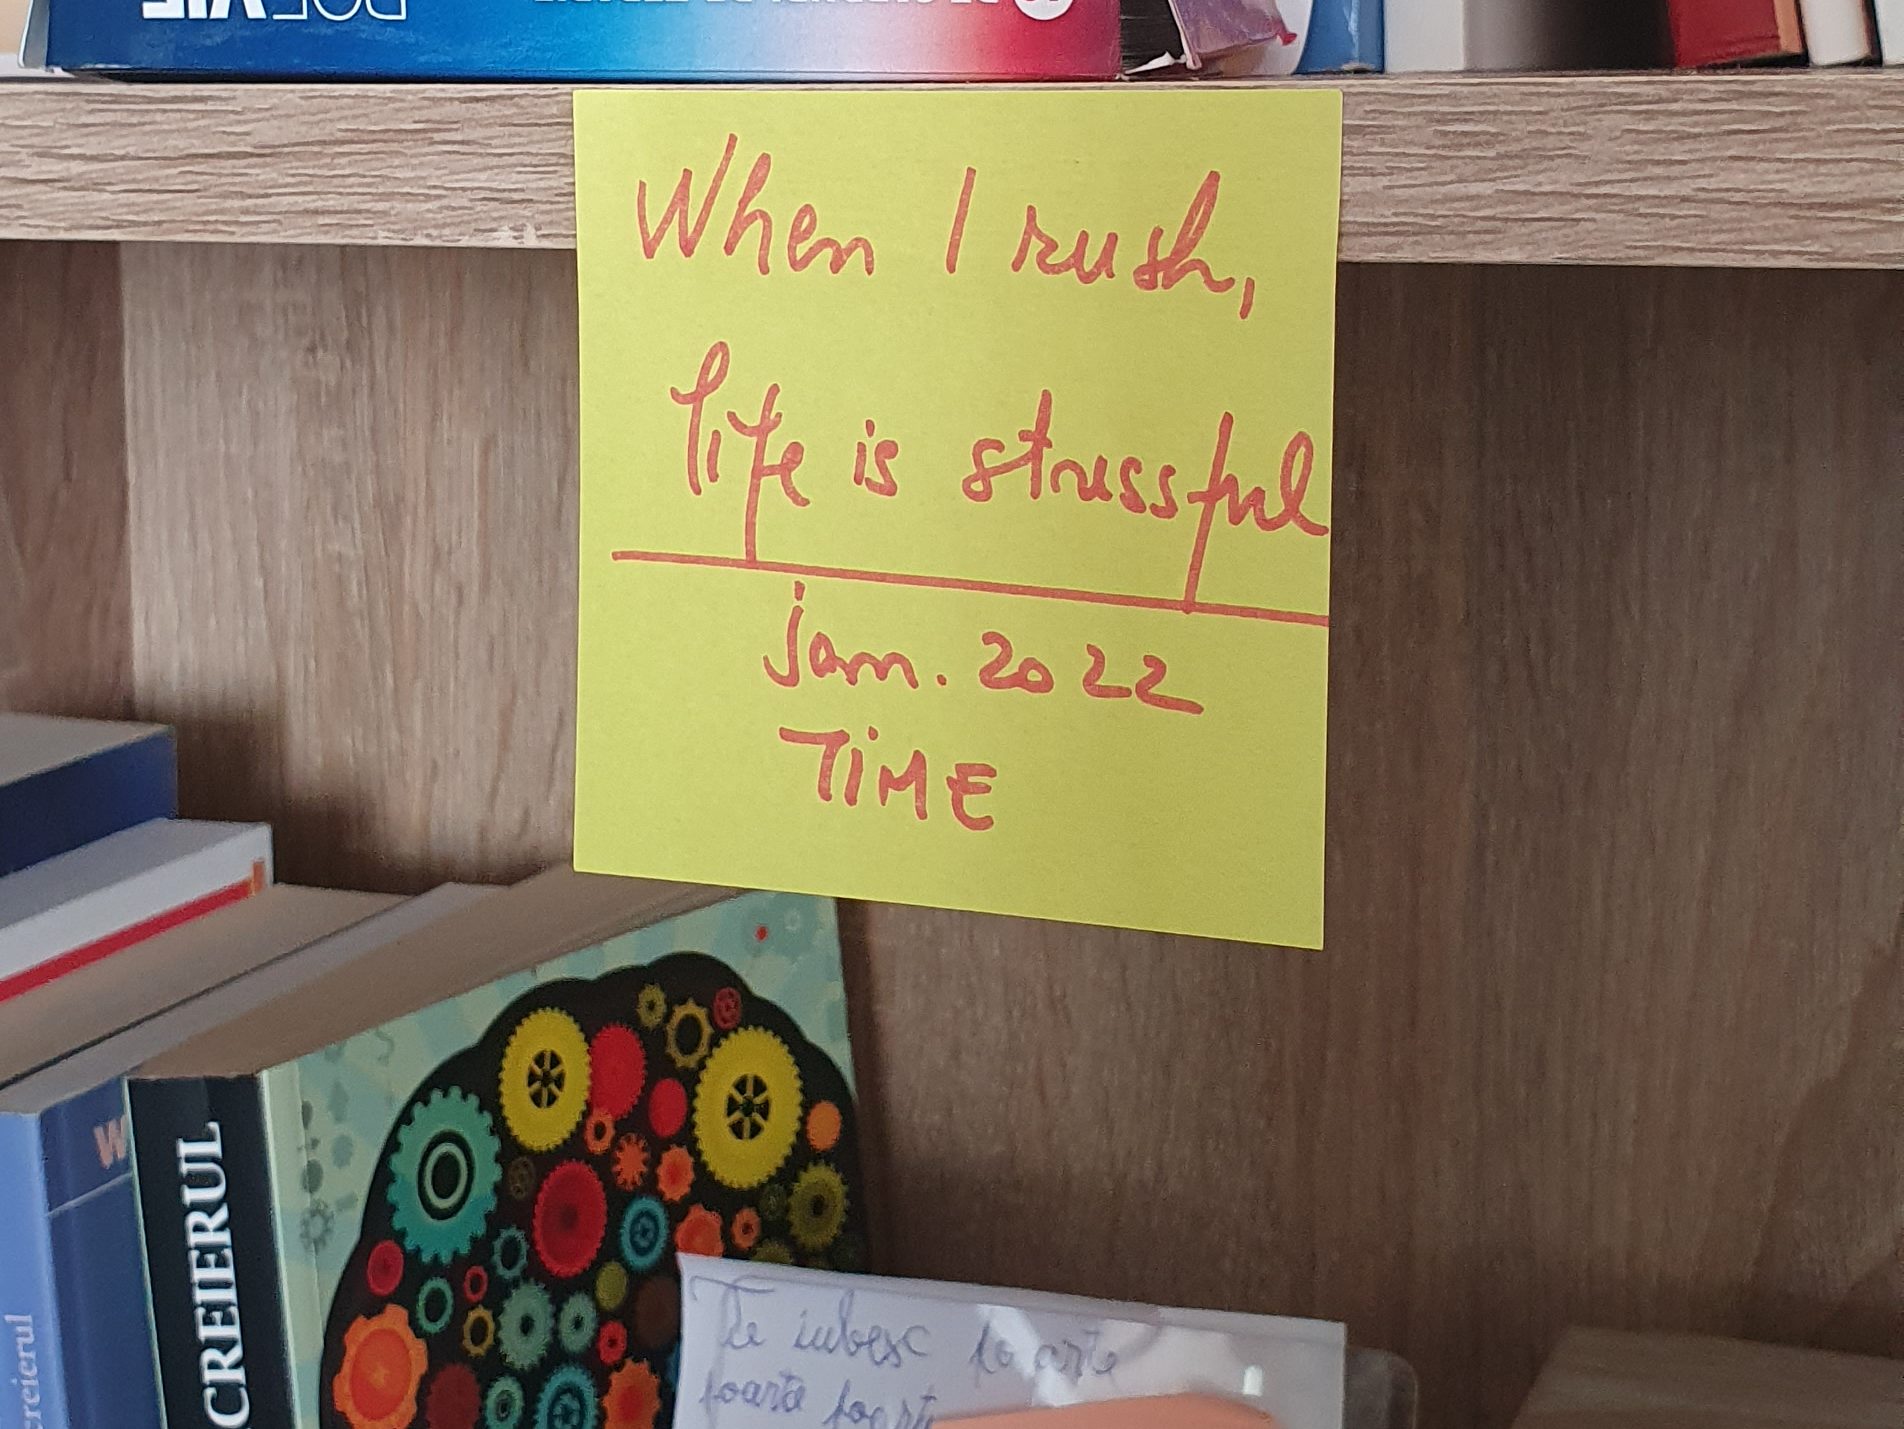 When I rush,
life is stressful
jan. 2022
TIME
W
CREIERUL
creierul
Te iubesc foarte
foarte foarte